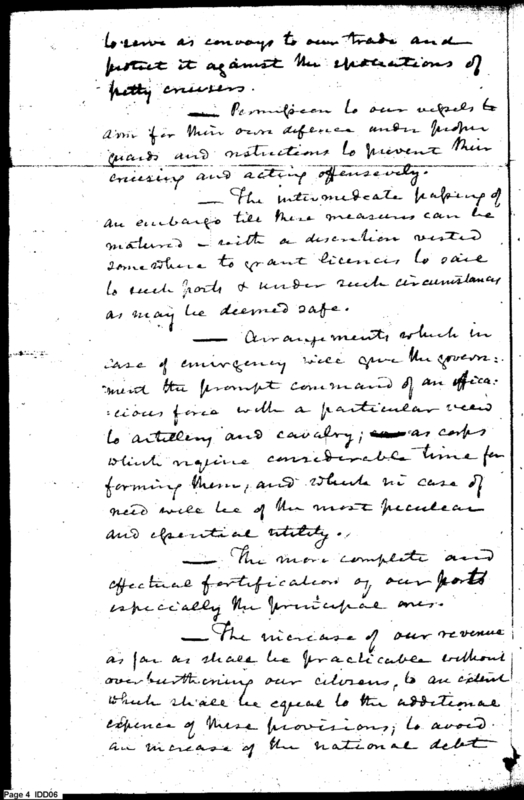 to serve as convoys to our trade and
protect it against the spoliations of
petty cruisers.
— Permission to our vessels to
arm for their own defence under proper
guards and restrictions to prevent their
cruising and acting offensively.
— The intermediate passing of
an embargo till these measures can be
matured – with a discretion vested
somewhere to grant licences to sail
to such ports & under such circumstances
as may be deemed safe.
— Arrangements which in
case of emergency will give the govern:
ment the prompt command of an effica:
:cious force with a particular view
to artillery and cavalry; as corps
which require considerable time for
forming them, and which in case of
need will be of the most peculiar
and essential utility.
— The more complete and
effectual fortification of our ports
especially the principal ones.
— The increase of our revenue
as far as shall be practicable without
overburthening our citizens, to an extent
which shall be equal to the additional
expence of these provisions, to avoid
an increase of the national debt
Page 4 IDD06